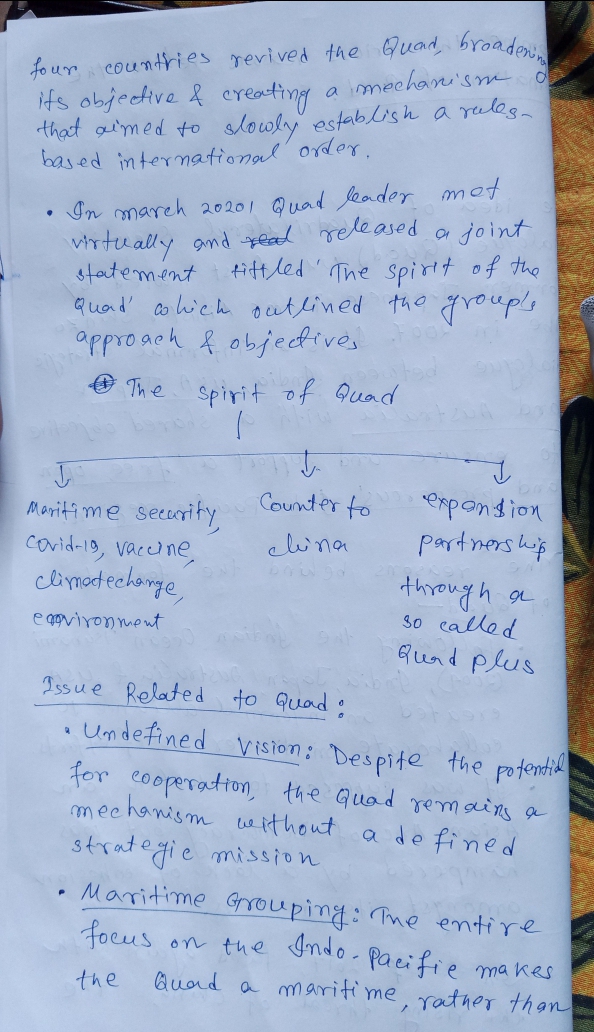 four countries revived the Quad, broadening
its objective & creating a mechanism
that aimed to slowly establish a rules-
based international order.
• In march 20201 Quad leader met
virtually and real released a joint
statement tittled 'The spirit of the
Quad' which outlined the group's
approach & objectives
The spirit of Quad
Maritime security,
Covid-19, vaccine,
climatechange,
environment
Counter to
china
expansion
partnership
through a
so called
Quad plus
Issue Related to Quad:
• Undefined Vision: Despite the potential
for cooperation, the Quad remains a
mechanism without a defined
strategic mission
• Maritime Grouping: The entire
focus on the Indo-Pacific makes
the Quad a maritime, rather than